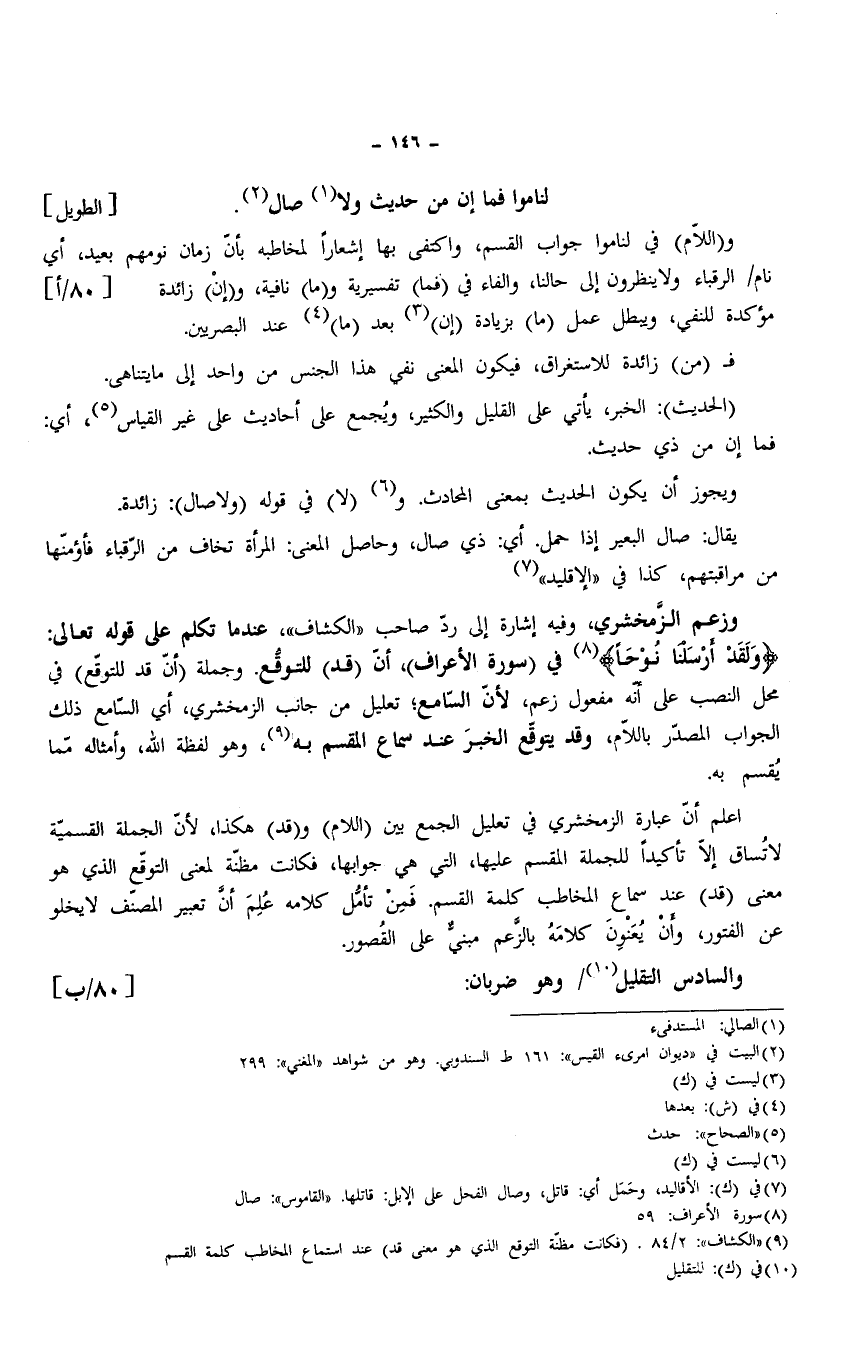 - ١٤٦ -
لناموا فما إن من حديث ولا(١) صال(٢). [الطويل]
و(اللاّم) في لناموا جواب القسم، واكتفى بها إشعاراً لمخاطبه بأنّ زمان نومهم بعيد، أي
نام/ الرقباء ولاينظرون إلى حالنا، والفاء في (فما) تفسيرية و(ما) نافية، و(إنْ) زائدة [٨٠/أ]
مؤكدة للنفي، ويبطل عمل (ما) بزيادة (إن)(٣) بعد (ما)(٤) عند البصريين.
فـ (من) زائدة للاستغراق، فيكون المعنى نفي هذا الجنس من واحد إلى مايتناهى.
(الحديث): الخبر، يأتي على القليل والكثير، ويُجمع على أحاديث على غير القياس(٥)، أي:
فما إن من ذي حديث.
ويجوز أن يكون الحديث بمعنى المحادث. و(٦) (لا) في قوله (ولاصال): زائدة.
يقال: صال البعير إذا حمل. أي: ذي صال، وحاصل المعنى: المرأة تخاف من الرّقباء فأؤمنّها
من مراقبتهم، كذا في «الإقليد»(٧)
وزعم الزَّمخشري، وفيه إشارة إلى ردّ صاحب «الكشاف»، عندما تكلم على قوله تعالى:
﴿وَلَقَدْ أَرْسَلْنَا نُوْحَاً﴾(٨) في (سورة الأعراف)، أنّ (قد) للتوقُّع. وجملة (أنّ قد للتوقّع) في
محل النصب على أنّه مفعول زعم، لأنّ السّامع؛ تعليل من جانب الزمخشري، أي السّامع ذلك
الجواب المصدّر باللاّم، وقد يتوقّع الخبرَ عند سماع المقسم به(٩)، وهو لفظة الله، وأمثاله مّما
يُقسم به.
اعلم أنّ عبارة الزمخشري في تعليل الجمع بين (اللام) و(قد) هكذا، لأنّ الجملة القسميّة
لاتُساق إلاّ تأكيداً للجملة المقسم عليها، التي هي جوابها، فكانت مظنّة لمعنى التوقّع الذي هو
معنى (قد) عند سماع المخاطب كلمة القسم. فَمِنْ تأمُّل كلامه عُلِمَ أنَّ تعبير المصنّف لايخلو
عن الفتور، وأَنْ يُعَنْوِنَ كلامَهُ بالزَّعم مبنيٌّ على القُصور.
والسادس التقليل(١٠)/ وهو ضربان: [٨٠/ب]
(١)الصالي: المستدفىء
(٢)البيت في «ديوان امرىء القيس»: ١٦١ ط السندوبي. وهو من شواهد «المغني»: ٢٩٩
(٣)ليست في (ك)
(٤)في (ش): بعدها
(٥)«الصحاح»: حدث
(٦)ليست في (ك)
(٧)في (ك): الأقاليد، وحَمَل أي: قاتل، وصال الفحل على الإبل: قاتلها. «القاموس»: صال
(٨)سورة الأعراف: ٥٩
(٩)«الكشاف»: ٨٤/٢ . (فكانت مظنّة التوقع الذي هو معنى قد) عند استماع المخاطب كلمة القسم
(١٠)في (ك): للتقليل